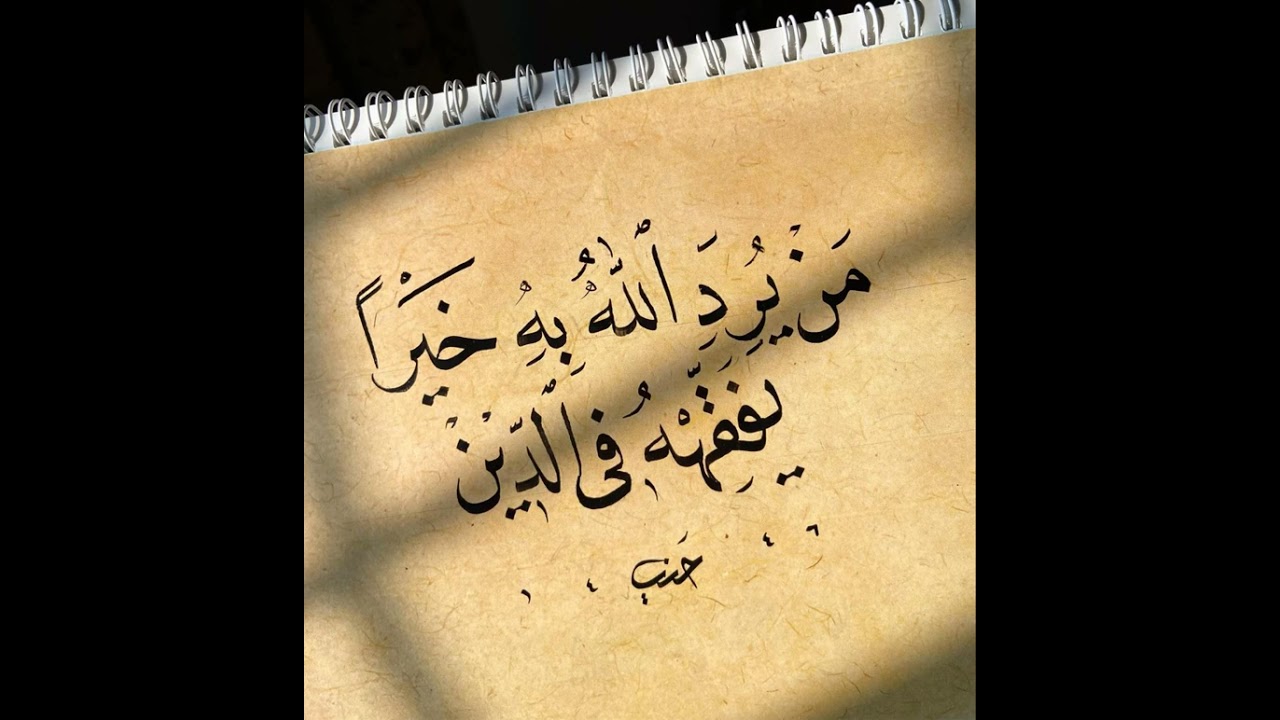 مَنْ يُرِدَِ ٱللّٰهُ بِهِ خَيْراً
يفَقِّهْهُ فِي الدِّيْنْ
٦ ٤
١ ٤